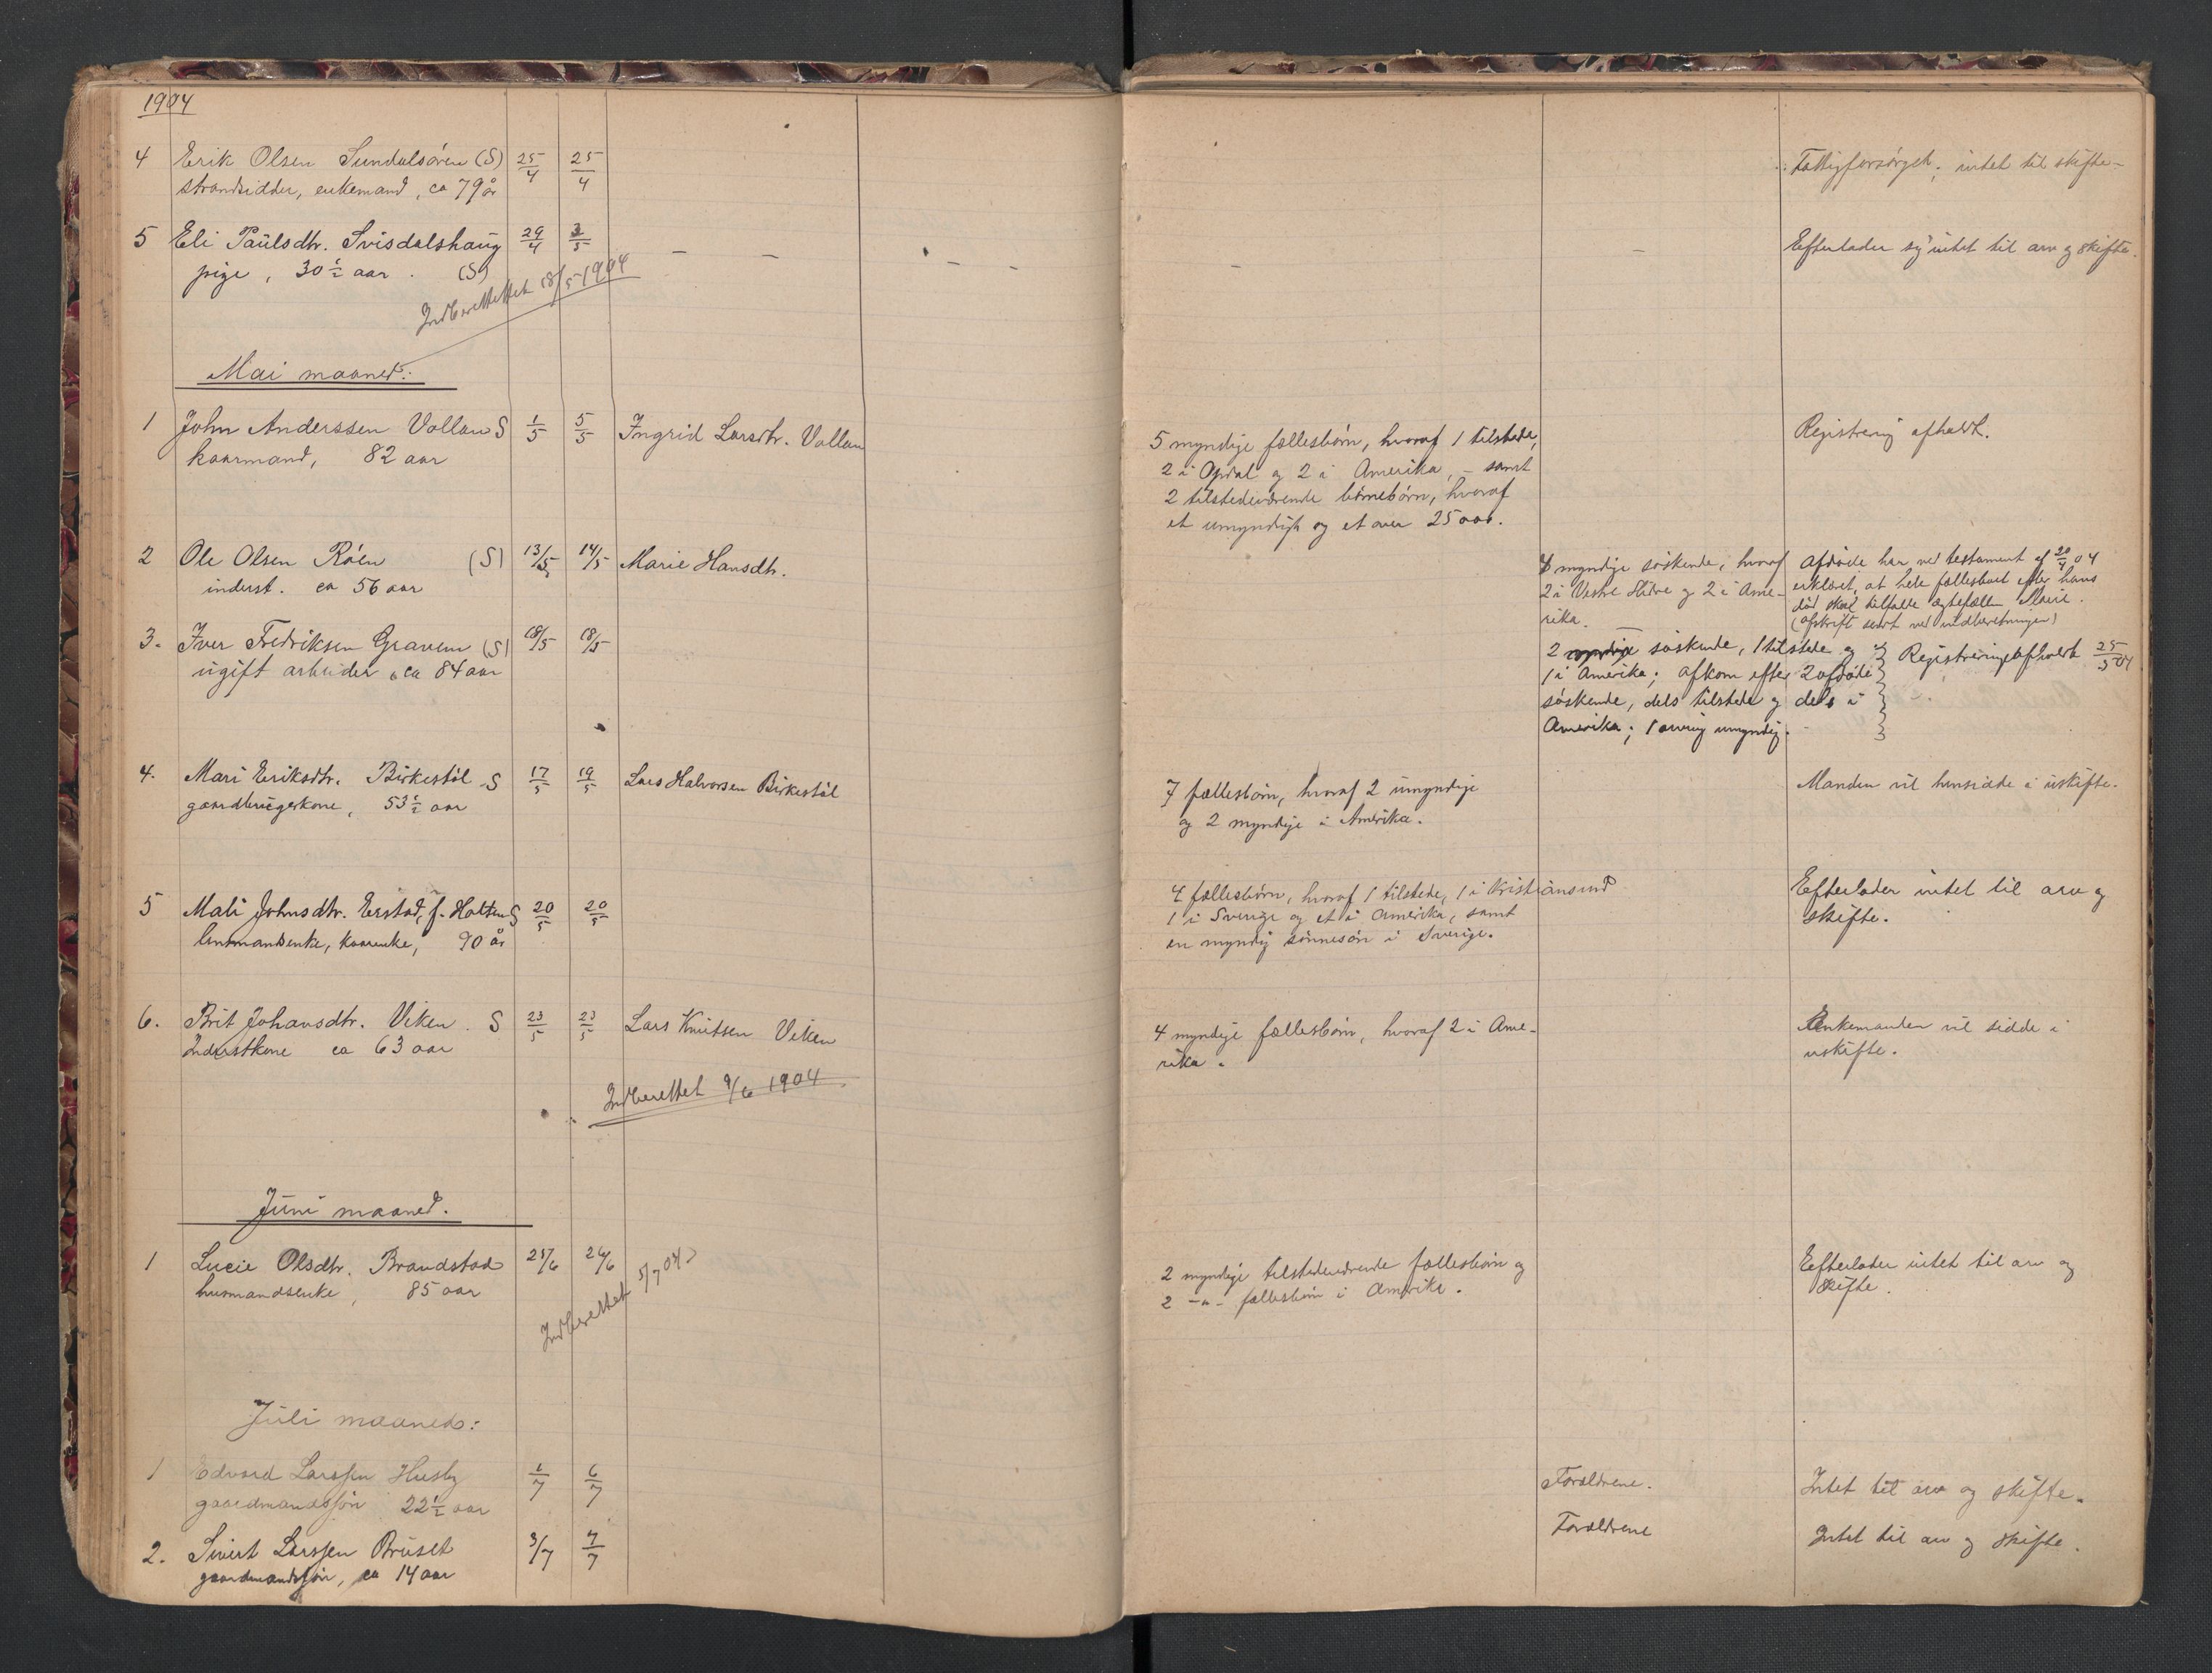 1904
4 Erik Olsen Sundalsøren (S) 25/4 25/4 Fattigforsørget; intet til skifte –
strandsidder, enkemand, ca 79 år
5 Eli Paulsdtr. Svisdalshaug 29/4 3/5 – – – – – – Efterlader sig intet til arv og skifte.
pige, 30½ aar. (S)
Indberettet 18/5 1904
Mai maaned:
1 John Anderssen Vollan S 1/5 5/5 Ingrid Larsdtr. Vollan 5 myndige fællesbørn, hvoraf 1 tilstede, Registrering afholdt.
kaarmand, 82 aar 2 i Opdal og 2 i Amerika, – samt
2 tilstedeværende børnebørn, hvoraf
et umyndigt og et over 25 aar.
2 Ole Olsen Røen (S) 13/5 14/5 Marie Hansdtr. 4 myndige søskende, hvoraf Afdøde har ved testament af 20/4 04
inderst. ca 56 aar 2 i Vestre Slidre og 2 i Ame- erklæret, at hele fællesboet efter hans
rika. død skal tilfalde ægtefællen Marie.
(afskrift sendt ved indberetningen)
3. Iver Fredriksen Gravem (S) 18/5 18/5 2 myndige søskende, 1 tilstede og Registrering afholdt 25/5 04
ugift arbeider, ca 84 aar 1 i Amerika; afkom efter 2 afdøde
søskende, dels tilstede og dels i
Amerika; 1 arving umyndig.
4. Mari Eriksdtr. Birkestøl S 17/5 19/5 Lars Halvorsen Birkestøl 7 fællesbørn, hvoraf 2 umyndige Manden vil hensidde i uskifte.
gaardbrugerkone, 53½ aar og 2 myndige i Amerika.
5 Mali Johnsdtr. Erstad, f. Holten S 20/5 20/5 4 fællesbørn, hvoraf 1 tilstede, 1 i Kristiansund Efterlader intet til arv og
enke, kaarenke, 90 år 1 i Sverige og et i Amerika, samt skifte.
en myndig sønnesøn i Sverige.
6. Brit Johansdtr. Viken. S 23/5 23/5 Lars Knutsen Viken 4 myndige fællesbørn, hvoraf 2 i Ame- Enkemanden vil sidde i
Inderstkone ca 63 aar rika. uskifte.
Indberettet 9/6 1904
Juni maaned.
1 Lucie Olsdtr. Brandstad 25/6 26/6 2 myndige tilstedeværende fællesbørn og Efterlader intet til arv og
husmandsenke, 85 aar 2 –"– fællesbørn i Amerika. skifte.
Indberettet 5/7 04
Juli maaned:
1 Edvard Larssen Husby 1/7 6/7 Forældrene. Intet til arv og skifte.
gaardmandssøn 22½ aar
2. Sivert Larssen Bruset 3/7 7/7 Forældrene Intet til arv og skifte.
gaardmandssøn, ca 14 aar